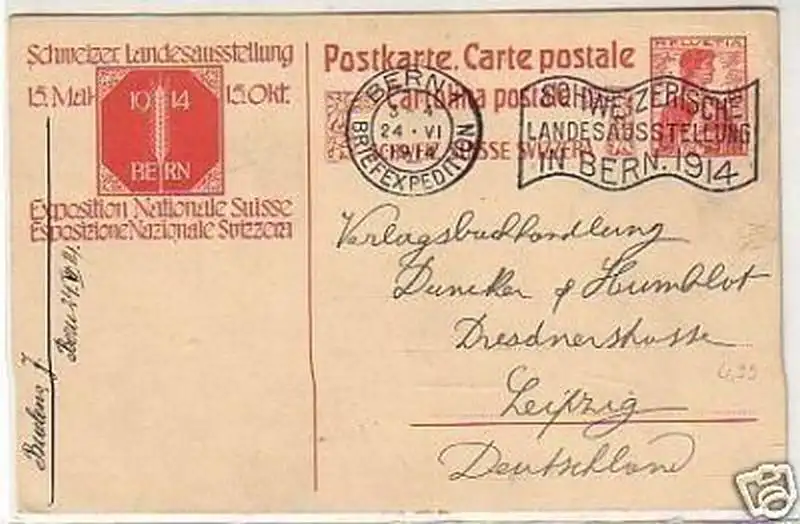 Schweizer Landesausstellung
15. Mai 1914 15. Okt.
BERN
Exposition Nationale Suisse
Esposizione Nazionale Svizzera
Postkarte. Carte postale
Cartolina postale
SCHWEIZ. SUISSE. SVIZZERA
HELVETIA
BERN
24 · VI
1914
BRIEFEXPEDITION
SCHWEIZERISCHE
LANDESAUSSTELLUNG
IN BERN. 1914
Verlagsbuchhandlung
Duncker & Humblot
Dresdnerstrasse
Leipzig
Deutschland
Bern 24. VI 14.
4,99